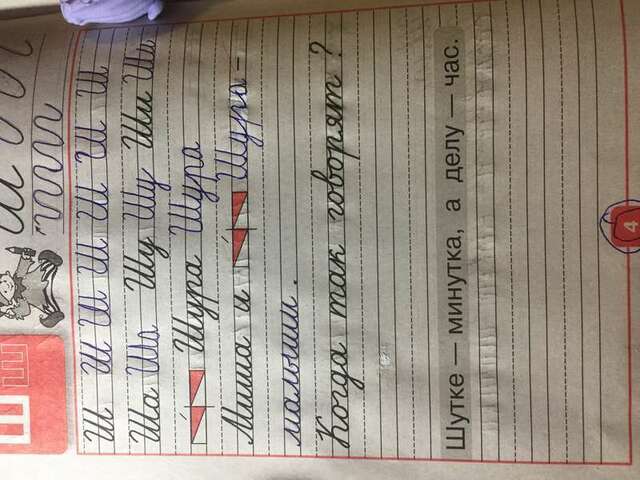 Ш Ш
Ш Ш Ш Ш Ш Ш Ш Ш
Ша Ша Шу Шу Ши Ши
Шура Шура
Миша и Шура –
малыши.
Когда так говорят?
Шутке — минутка, а делу — час.
4